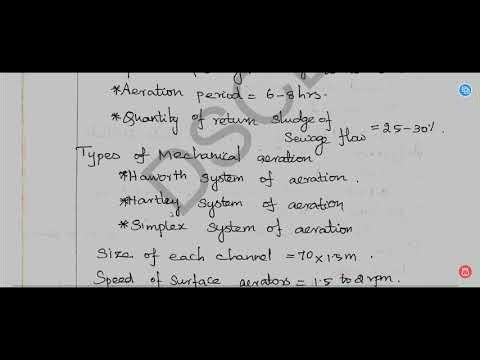 *Aeration period = 6-8 hrs.
*Quantity of return sludge of
Sewage flow = 25-30%.
Types of Mechanical aeration
*Haworth system of aeration.
*Hartley system of aeration
*Simplex system of aeration
Size of each channel = 70 x 1.3 m.
Speed of Surface aerators = 1.5 to 2 rpm.